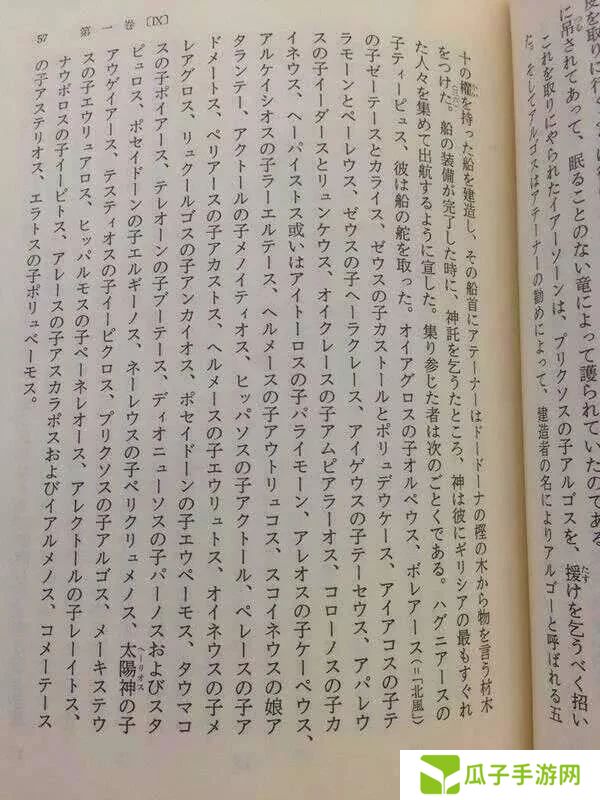 を取りに行
に吊されてあって、眠ることのない竜によって護られていたのである
これを取りにやられたイアーソーンは、プリクソスの子アルゴスを、援けを乞うべく招い
た。そしてアルゴスはアテーナーの勧めによって、建造者の名によりアルゴーと呼ばれる五
第一巻〔IX〕
57
十の櫂を持った船を建造し、その船首にアテーナーはドードーナの樫の木から物を言う材木
をつけた。船の装備が完了した時に、神託を乞うたところ、神は彼にギリシアの最もすぐれ
た人々を集めて出航するように宣した。集り参じた者は次のごとくである。ハグニアースの
子ティーピュス、彼は船の舵を取った。オイアグロスの子オルペウス、ボレアース(=「北風」)
の子ゼーテースとカライス、ゼウスの子カストールとポリュデウケース、アイアコスの子テ
ラモーンとペーレウス、ゼウスの子ヘーラクレース、アイゲウスの子テーセウス、アパレウ
スの子イーダースとリュンケウス、オイクレースの子アムピアラーオス、コローノスの子カ
イネウス、ヘーパイストス或いはアイトーロスの子パライモーン、アレオスの子ケーペウス、
アルケイシオスの子ラーエルテース、ヘルメースの子アウトリュコス、スコイネウスの娘ア
タランテー、アクトールの子メノイティオス、ヒッパソスの子アクトール、ペレースの子ア
ドメートス、ペリアースの子アカストス、ヘルメースの子エウリュトス、オイネウスの子メ
レアグロス、リュクールゴスの子アンカイオス、ポセイドーンの子エウペーモス、タウマコ
スの子ポイアース、テレオーンの子ブーテース、ディオニューソスの子パーノスおよびスタ
ピュロス、ポセイドーンの子エルギーノス、ネーレウスの子ペリクリュメノス、太陽神の子
アウゲイアース、テスティオスの子イーピクロス、プリクソスの子アルゴス、メーキステウ
スの子エウリュアロス、ヒッパルモスの子ペーネレオース、アレクトールの子レーイトス、
ナウボロスの子イーピトス、アレースの子アスカラポスおよびイアルメノス、コメーテース
の子アステリオス、エラトスの子ポリュペーモス。
瓜子手游网